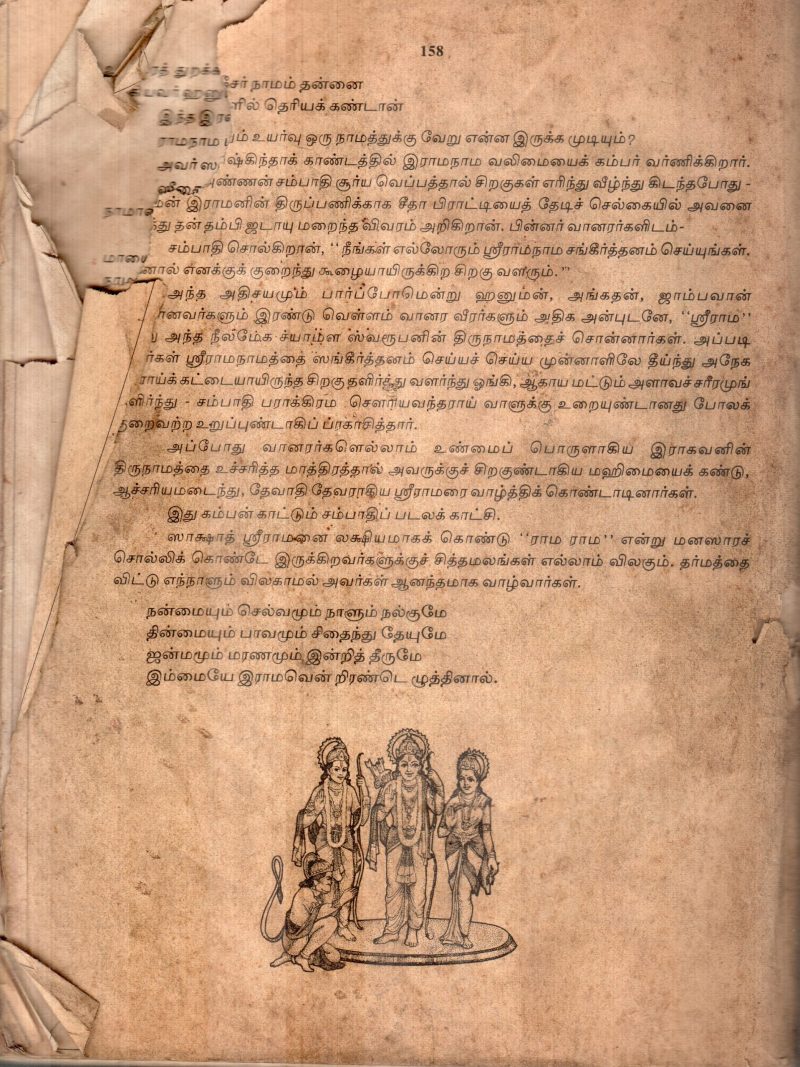 158
சேர் நாமம் தன்னை
ளில் தெரியக் கண்டான்
உயர்வு ஒரு நாமத்துக்கு வேறு என்ன இருக்க முடியும்?
ஷ்கிந்தாக் காண்டத்தில் இராமநாம வலிமையைக் கம்பர் வர்ணிக்கிறார்.
ண்ணன் சம்பாதி சூர்ய வெப்பத்தால் சிறகுகள் எரிந்து வீழ்ந்து கிடந்தபோது -
இராமனின் திருப்பணிக்காக சீதா பிராட்டியைத் தேடிச் செல்கையில் அவனை
து தன் தம்பி ஜடாயு மறைந்த விவரம் அறிகிறான். பின்னர் வானரர்களிடம்-
சம்பாதி சொல்கிறான், "நீங்கள் எல்லோரும் ஸ்ரீராமநாம சங்கீர்த்தனம் செய்யுங்கள்.
னால் எனக்குக் குறைந்து கூழையாயிருக்கிற சிறகு வளரும்."
அந்த அதிசயமும் பார்ப்போமென்று ஹனுமன், அங்கதன், ஜாம்பவான்
னவர்களும் இரண்டு வெள்ளம் வானர வீரர்களும் அதிக அன்புடனே, "ஸ்ரீராம"
அந்த நீலமேக ச்யாமள ஸ்வரூபனின் திருநாமத்தைச் சொன்னார்கள். அப்படி
ர்கள் ஸ்ரீராமநாமத்தை ஸங்கீர்த்தனம் செய்யச் செய்ய முன்னாளிலே தீய்ந்து அநேக
ராய்க் கட்டையாயிருந்த சிறகு தளிர்த்து வளர்ந்து ஓங்கி, ஆகாய மட்டும் அளாவச்சரீரமுங்
ளிர்ந்து - சம்பாதி பராக்கிரம சௌரியவந்தராய் வாளுக்கு உறையுண்டானது போலக்
குறைவற்ற உறுப்புண்டாகிப் ப்ரகாசித்தார்.
அப்போது வானரர்களெல்லாம் உண்மைப் பொருளாகிய இராகவனின்
திருநாமத்தை உச்சரித்த மாத்திரத்தால் அவருக்குச் சிறகுண்டாகிய மஹிமையைக் கண்டு,
ஆச்சரியமடைந்து, தேவாதி தேவராகிய ஸ்ரீராமரை வாழ்த்திக் கொண்டாடினார்கள்.
இது கம்பன் காட்டும் சம்பாதிப் படலக் காட்சி.
ஸாக்ஷாத் ஸ்ரீராமனை லக்ஷியமாகக் கொண்டு "ராம ராம" என்று மனஸாரச்
சொல்லிக் கொண்டே இருக்கிறவர்களுக்குச் சித்தமலங்கள் எல்லாம் விலகும். தர்மத்தை
விட்டு எந்நாளும் விலகாமல் அவர்கள் ஆனந்தமாக வாழ்வார்கள்.
நன்மையும் செல்வமும் நாளும் நல்குமே
தின்மையும் பாவமும் சிதைந்து தேயுமே
ஜன்மமும் மரணமும் இன்றித் தீருமே
இம்மையே இராமவென் றிரண்டெ ழுத்தினால்.